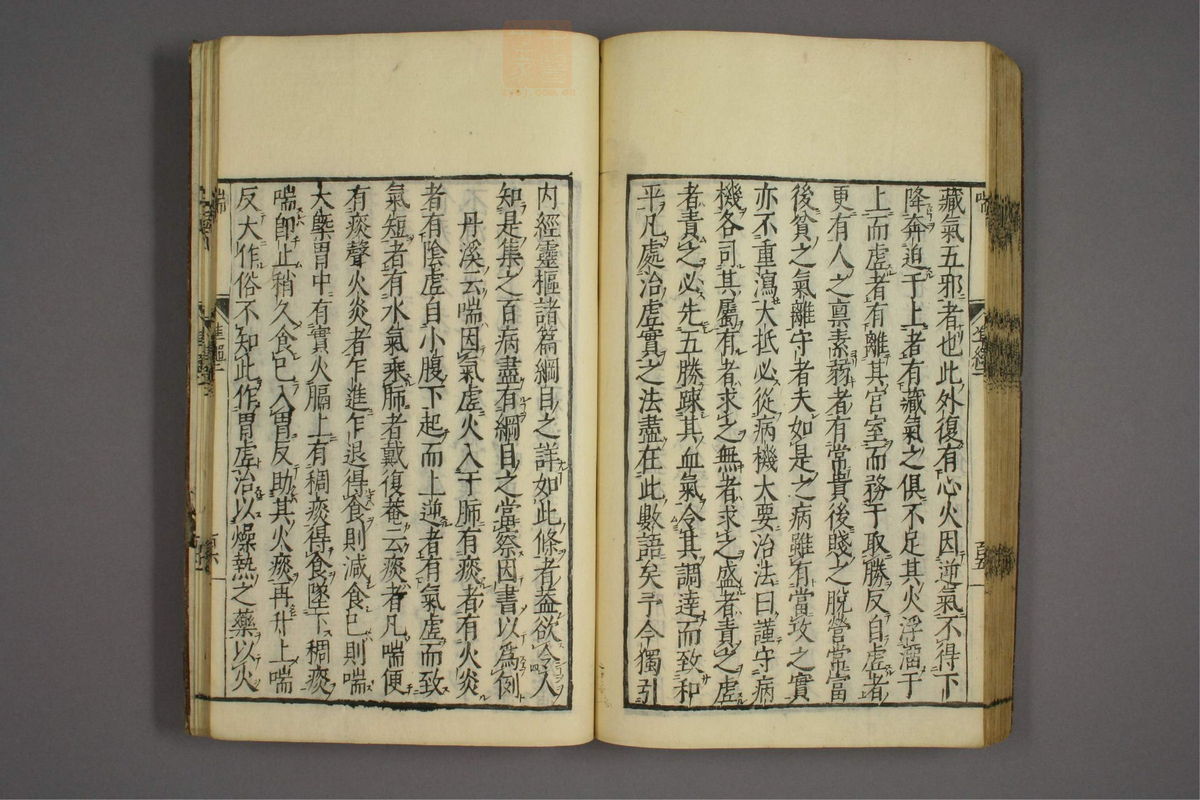 藏氣五邪者也此外復有心火因逆氣不得下
降奔迫于上者有藏氣之俱不足其火浮溜于
上而虛者有離其宮室而務于取勝反自虛者
更有人之禀素弱者有常貴後賤之脫營常富
後貧之氣離守者夫如是之病雖有當攻之實
亦不重瀉大抵必從病機大要治法曰謹守病
機各司其屬有者求之無者求之盛者責之虛
者責之必先五勝踈其血氣令其調達而致和
平凡處治虛實之法盡在此數語矣予今獨引
内經靈樞諸篇綱目之詳如此條者益欲令人
知是集之百病盡有綱目之當察因書以爲例
丹溪云喘因氣虛火入于肺有痰者有火炎
者有陰虛自小腹下起而上逆者有氣虛而致
氣短者有水氣乘肺者戴復菴云痰者凡喘便
有痰聲火炎者乍進乍退得食則減食已則喘
大槩胃中有實火膈上有稠痰得食墜下稠痰
喘卽止稍久食已入胃反助其火痰再升上喘
反大作俗不知此作胃虛治以燥熱之藥以火
喘